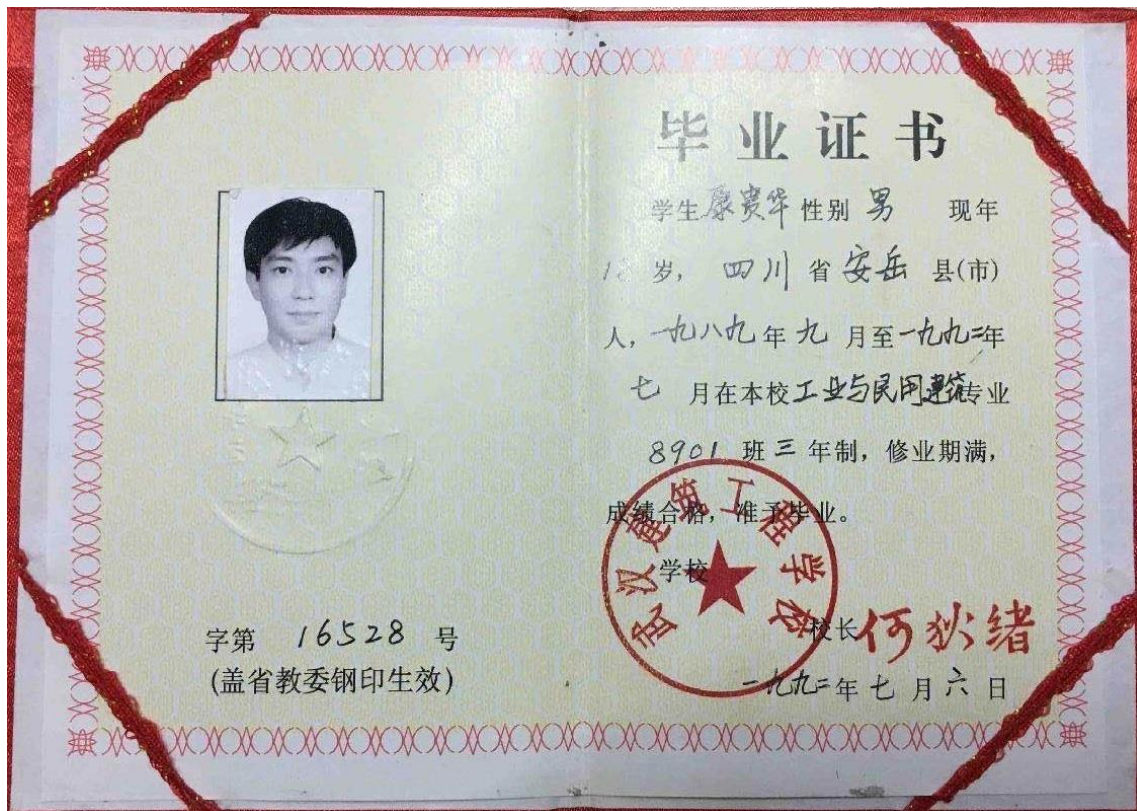 字第 16528 号
(盖省教委钢印生效)
毕业证书
学生康贵华性别 男 现年
岁, 四川省安岳县(市)
人, 一九八九年九月至一九九二年
七月在本校工业与民用建筑专业
8901班三年制, 修业期满,
成绩合格, 准予毕业。
学校
武汉建筑工程学校
校长何狄绪
一九九二年七月六日